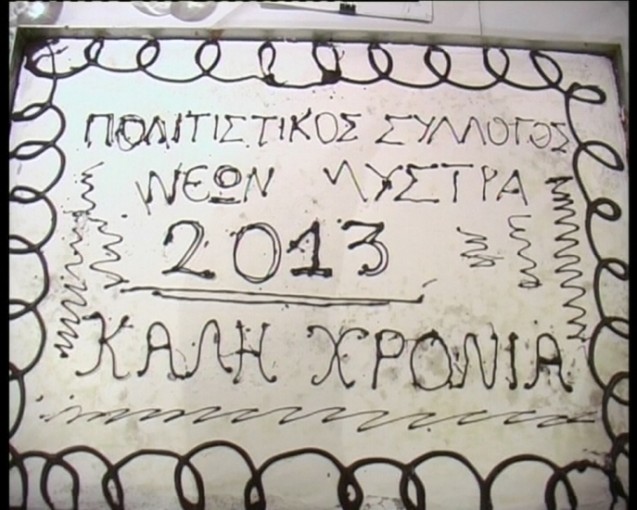 ΠΟΛΙΤΙΣΤΙΚΟΣ ΣΥΛΛΟΓΟΣ
ΝΕΩΝ ΜΥΣΤΡΑ
2013
ΚΑΛΗ ΧΡΟΝΙΑ